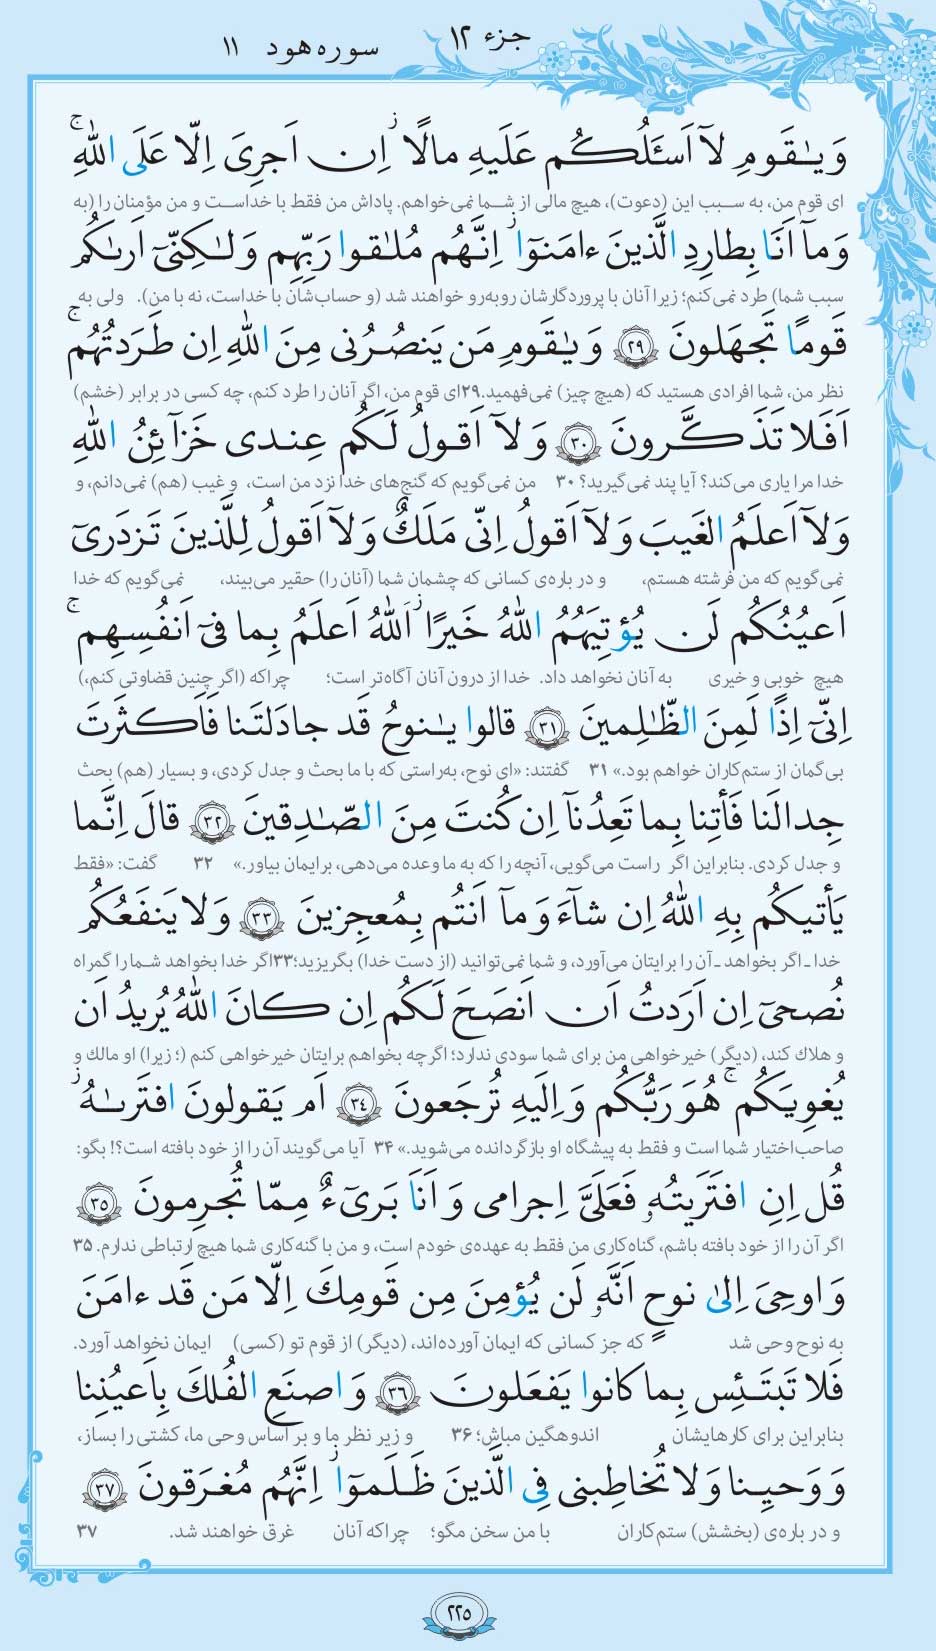 جزء ۱۲ سوره هود ۱۱
وَيٰقَومِ لَآ اَسـَٔلُكُم عَلَيهِ مالًا ۖ اِن اَجرِىَ اِلّا عَلَى اللهِ ۚ
ای قوم من، به سبب این (دعوت)، هیچ مالی از شما نمی‌خواهم. پاداش من فقط با خداست و من مؤمنان را (به
وَمآ اَنَا بِطارِدِ الَّذينَ ءامَنوٓا ۚ اِنَّهُم مُلٰقوا رَبِّهِم وَلٰكِنّىٓ اَرىٰكُم
سبب شما) طرد نمی‌کنم؛ زیرا آنان با پروردگارشان روبه‌رو خواهند شد (و حساب‌شان با خداست، نه با من). ولی به
قَومًا تَجهَلونَ ﴿۲۹﴾ وَيٰقَومِ مَن يَنصُرُنى مِنَ اللهِ اِن طَرَدتُهُم ۚ
نظر من، شما افرادی هستید که (هیچ چیز) نمی‌فهمید.۲۹ای قوم من، اگر آنان را طرد کنم، چه کسی در برابر (خشم)
اَفَلا تَذَكَّرونَ ﴿۳۰﴾ وَلآ اَقولُ لَكُم عِندى خَزآئِنُ اللهِ
خدا مرا یاری می‌کند؟ آیا پند نمی‌گیرید؟ ۳۰ من نمی‌گویم که گنج‌های خدا نزد من است، و غیب (هم) نمی‌دانم، و
وَلآ اَعلَمُ الغَيبَ وَلآ اَقولُ اِنّى مَلَكٌ وَلآ اَقولُ لِلَّذينَ تَزدَرىٓ
نمی‌گویم که من فرشته هستم، و در باره‌ی کسانی که چشمان شما (آنان را) حقیر می‌بیند، نمی‌گویم که خدا
اَعيُنُكُم لَن يُؤتِيَهُمُ اللهُ خَيرًا ۖ اَللهُ اَعلَمُ بِما فىٓ اَنفُسِهِم ۚ
هیچ خوبی و خیری به آنان نخواهد داد. خدا از درون آنان آگاه‌تر است؛ چراکه (اگر چنین قضاوتی کنم،)
اِنّىٓ اِذًا لَمِنَ الظّٰلِمينَ ﴿۳۱﴾ قالوا يٰنوحُ قَد جادَلتَنا فَاَكثَرتَ
بی‌گمان از ستم‌کاران خواهم بود.» ۳۱ گفتند: «ای نوح، به‌راستی که با ما بحث و جدل کردی، و بسیار (هم) بحث
جِدالَنا فَأتِنا بِما تَعِدُنآ اِن كُنتَ مِنَ الصّٰدِقينَ ﴿۳۲﴾ قالَ اِنَّما
و جدل کردی. بنابراین اگر راست می‌گویی، آنچه را که به ما وعده می‌دهی، برایمان بیاور.» ۳۲ گفت: «فقط
يَأتيكُم بِهِ اللهُ اِن شآءَ وَمآ اَنتُم بِمُعجِزينَ ﴿۳۳﴾ وَلا يَنفَعُكُم
خدا ـ اگر بخواهد ـ آن را برایتان می‌آورد، و شما نمی‌توانید (از دست خدا) بگریزید؛۳۳اگر خدا بخواهد شما را گمراه
نُصحىٓ اِن اَرَدتُ اَن اَنصَحَ لَكُم اِن كانَ اللهُ يُريدُ اَن
و هلاك کند، (دیگر) خیرخواهی من برای شما سودی ندارد؛ اگرچه بخواهم برایتان خیرخواهی کنم (؛ زیرا) او مالك و
يُغوِيَكُم ۚ هُوَ رَبُّكُم وَاِلَيهِ تُرجَعونَ ﴿۳٤﴾ اَم يَقولونَ افتَرىٰهُ ۖ
صاحب‌اختیار شما است و فقط به پیشگاه او بازگردانده می‌شوید.» ۳۴ آیا می‌گویند آن را از خود بافته است؟! بگو:
قُل اِنِ افتَرَيتُهو فَعَلَىَّ اِجرامى وَاَنَا بَرىٓءٌ مِمّا تُجرِمونَ ﴿۳۵﴾
اگر آن را از خود بافته باشم، گناه‌کاری من فقط به عهده‌ی خودم است، و من با گنه‌کاری شما هیچ ارتباطی ندارم. ۳۵
وَاوحِىَ اِلىٰ نوحٍ اَنَّهو لَن يُؤمِنَ مِن قَومِكَ اِلّا مَن قَد ءامَنَ
به نوح وحی شد که جز کسانی که ایمان آورده‌اند، (دیگر) از قوم تو (کسی) ایمان نخواهد آورد.
فَلا تَبتَئِس بِما كانوا يَفعَلونَ ﴿۳۶﴾ وَاصنَعِ الفُلكَ بِاَعيُنِنا
بنابراین برای کارهایشان اندوهگین مباش؛ ۳۶ و زیر نظر ما و بر اساس وحی ما، کشتی را بساز،
وَوَحيِنا وَلا تُخاطِبنى فِى الَّذينَ ظَلَموٓا ۚ اِنَّهُم مُغرَقونَ ﴿۳۷﴾
و در باره‌ی (بخشش) ستم‌کاران با من سخن مگو؛ چراکه آنان غرق خواهند شد. ۳۷
۲۲۵